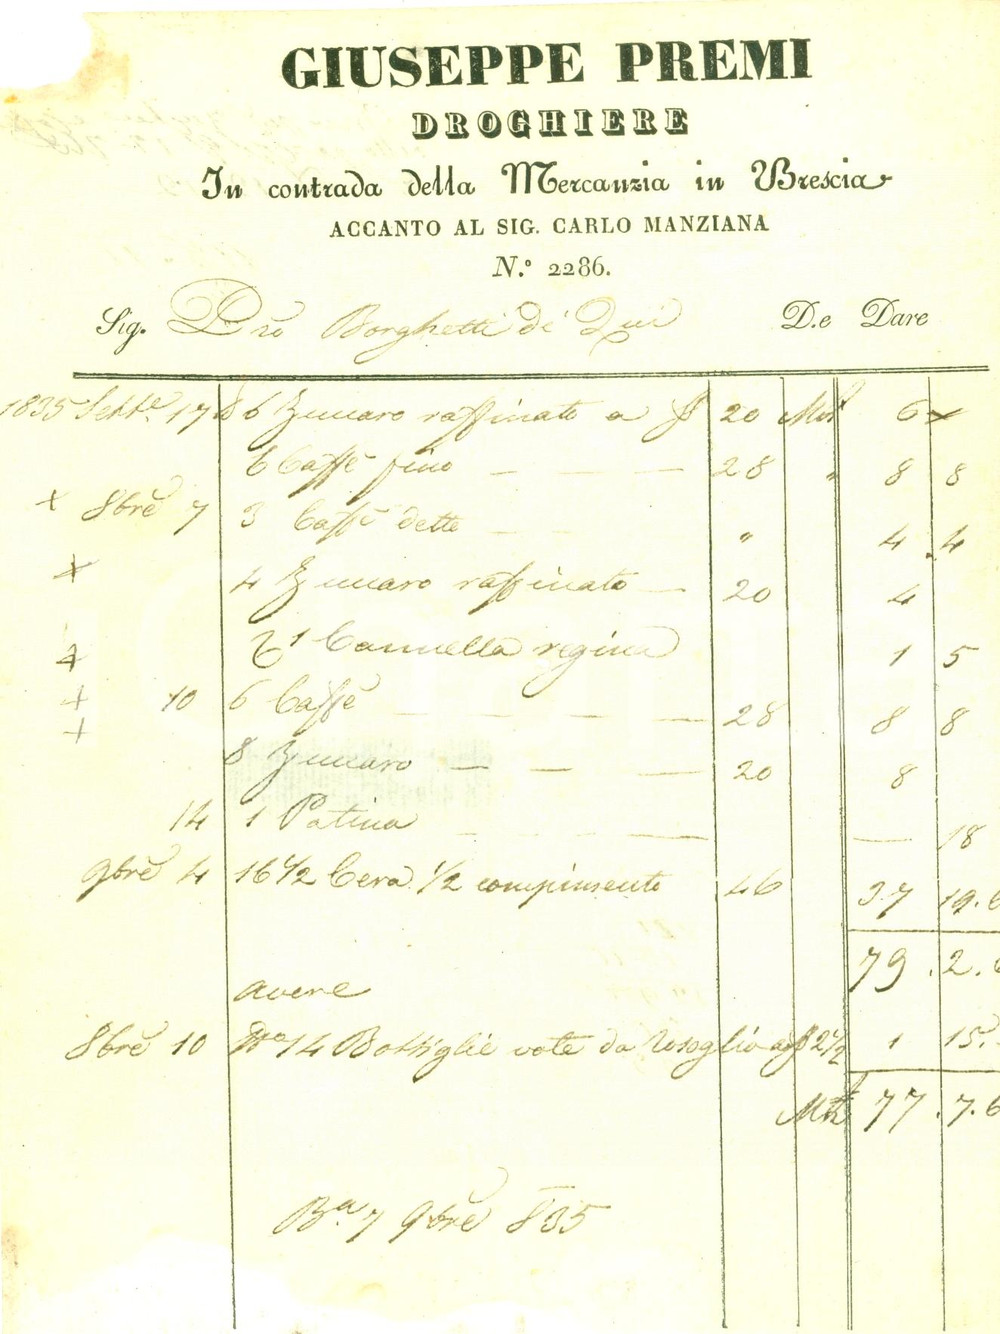 GIUSEPPE PREMI
DROGHIERE
In contrada della Mercanzia in Brescia
ACCANTO AL SIG. CARLO MANZIANA
N.º 2286.
Sig. Pro Borghetti di Qui D.e Dare
1835 Sette 17 6 Zuccaro raffinato a 20 6
6 Caffè fino — — — 28 " 8 8
+ 8bre 7 3 Caffè dette — — " 4 . 4
+ 4 Zuccaro raffinato — 20 4
+ 1 Cannella regina 1 5
+ 10 6 Caffè — — — 28 8 8
+ 8 Zuccaro — — — 20 8
14 1 Patina — — — — 18
9bre 4 16 1/2 Cera 1/2 compimento 46 37 19.6
79 . 2 . 6
avere
8bre 10 14 Bottiglie vote da Rosoglio a 2 1/2 1 15.
77 . 7 . 6
Ba. 7 9bre 835